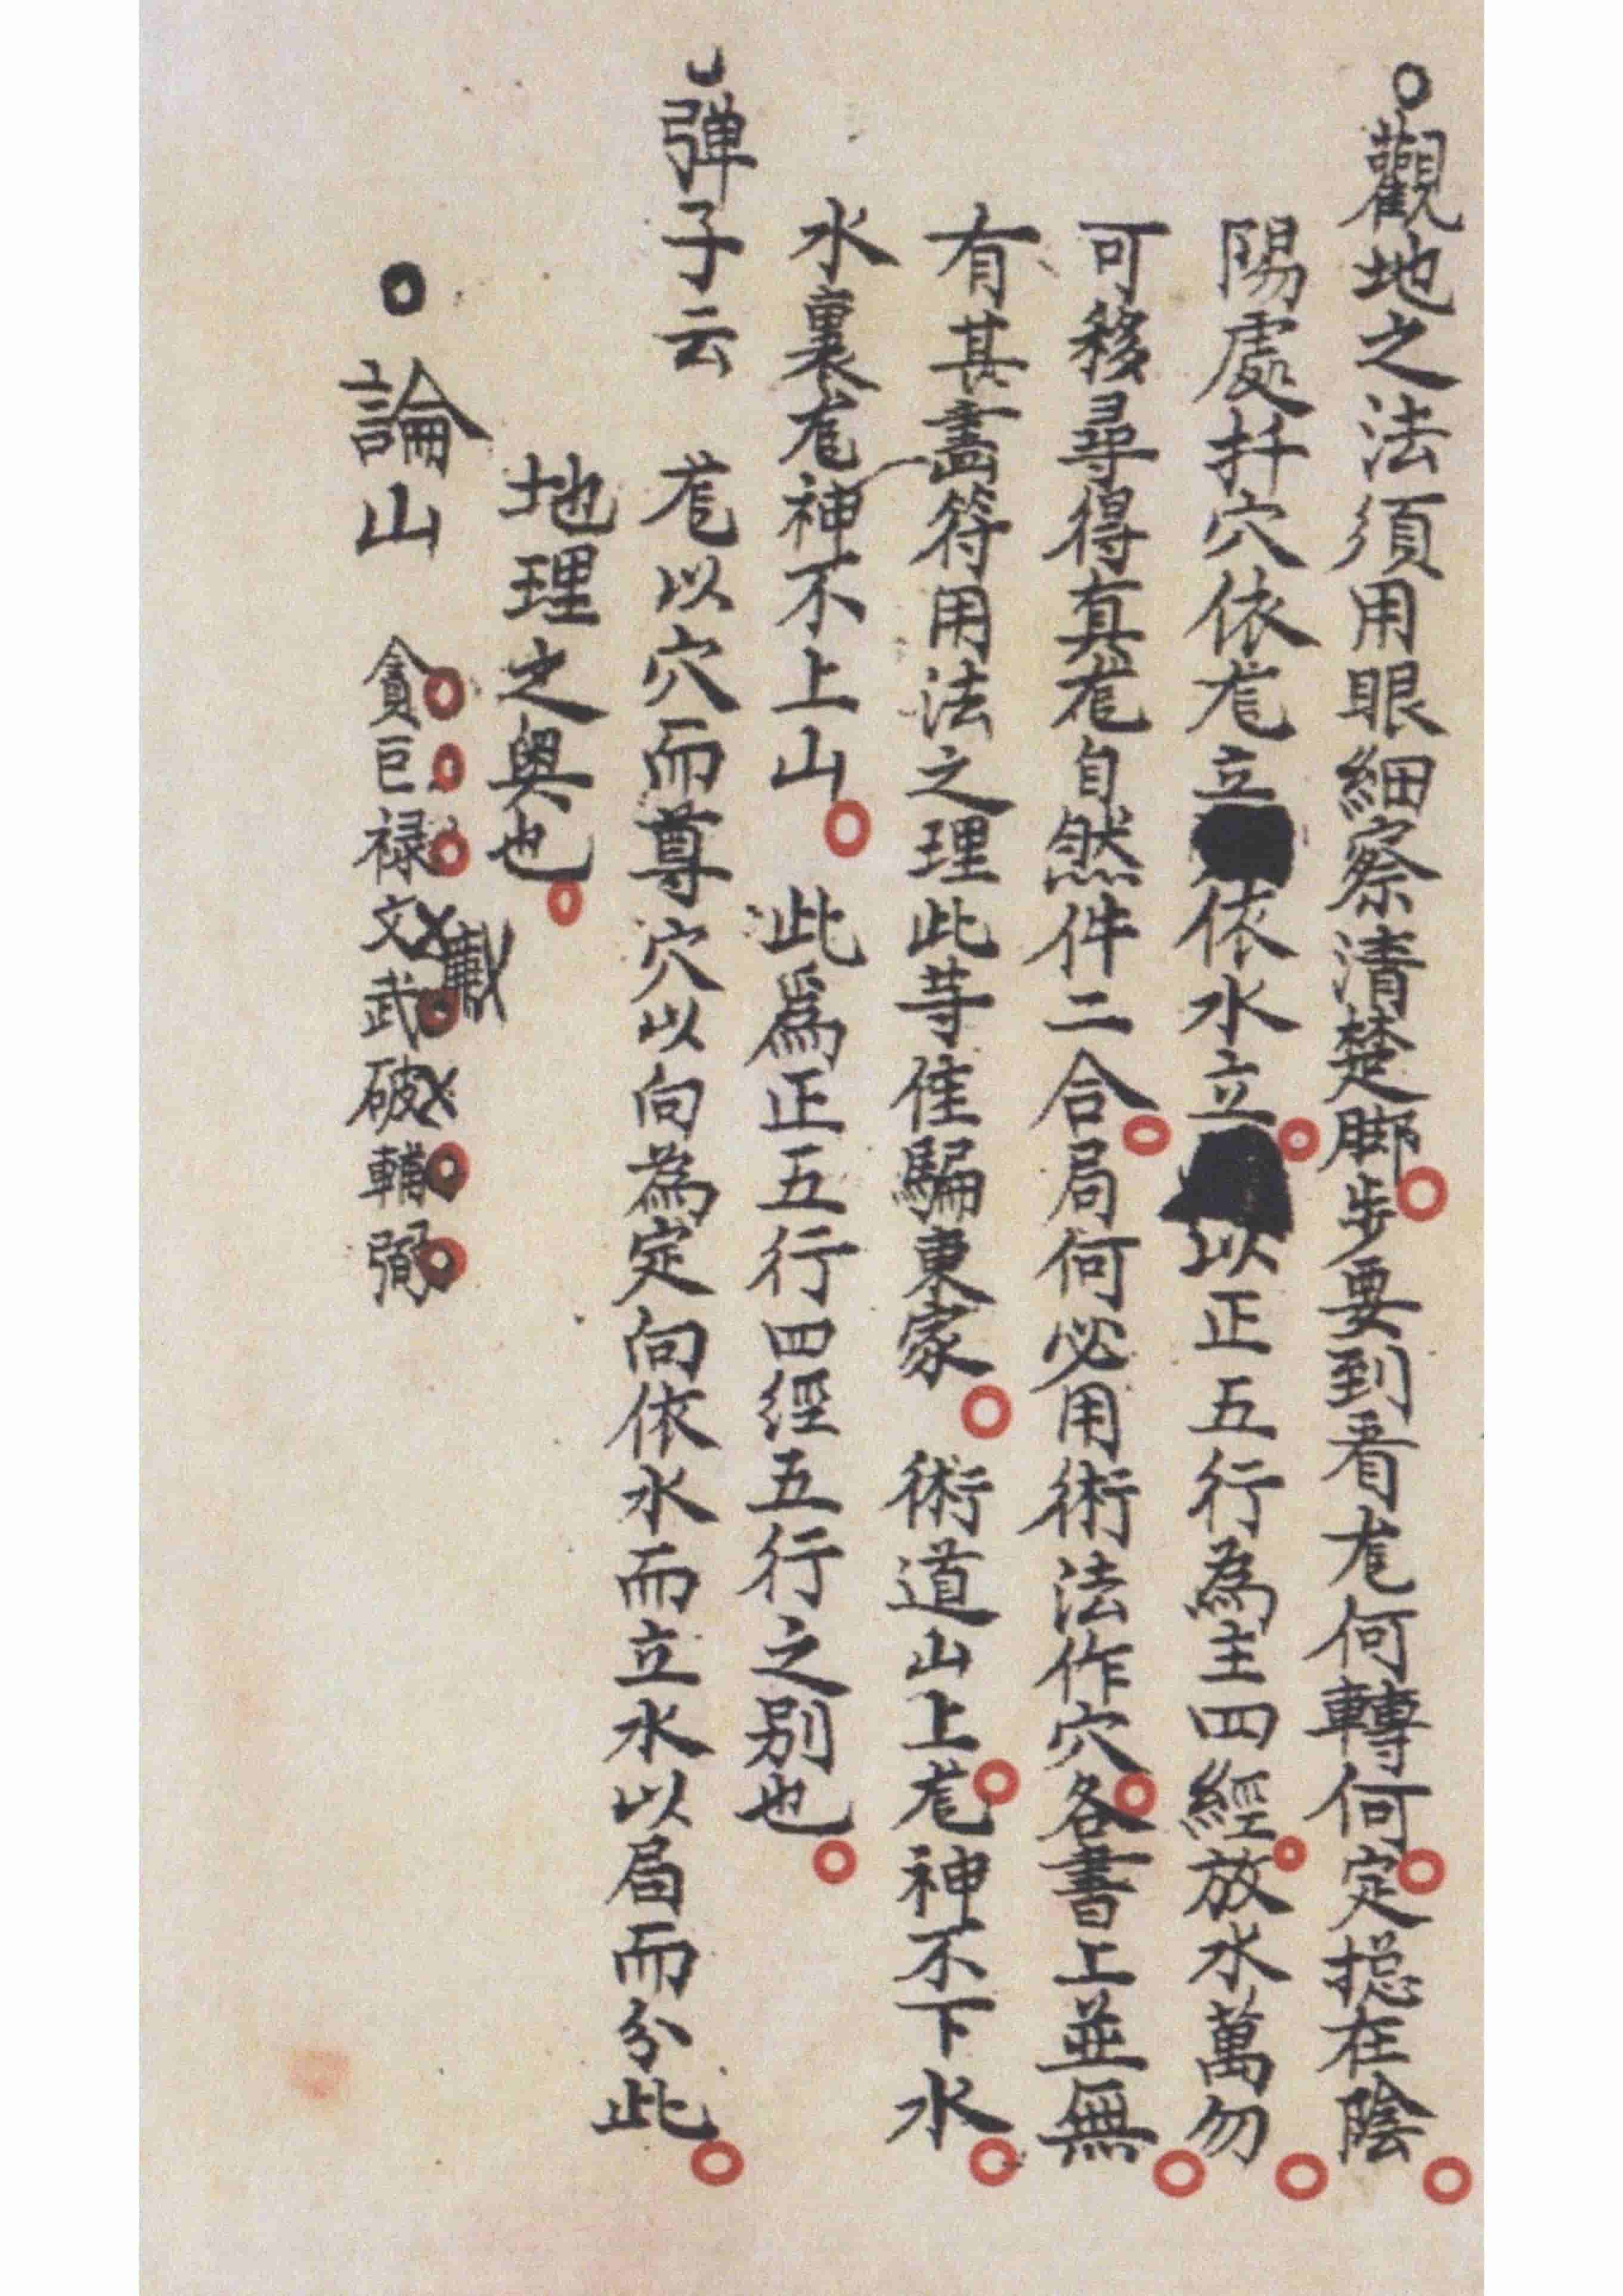 觀地之法須用眼細察清楚脚步要到看竜何轉何定揔在陰
陽處扦穴依竜立依水立以正五行為主四經放水萬勿
可移尋得真竜自然件二合局何必用術法作穴各書上並無
有甚畵符用法之理此等隹騙東家 術道山上竜神不下水
水裏竜神不上山 此爲正五行四經五行之别也
弹子云 竜以穴而尊穴以向為定向依水而立水以局而分此
地理之奥也
論山 貪巨禄文廉武破輔弼